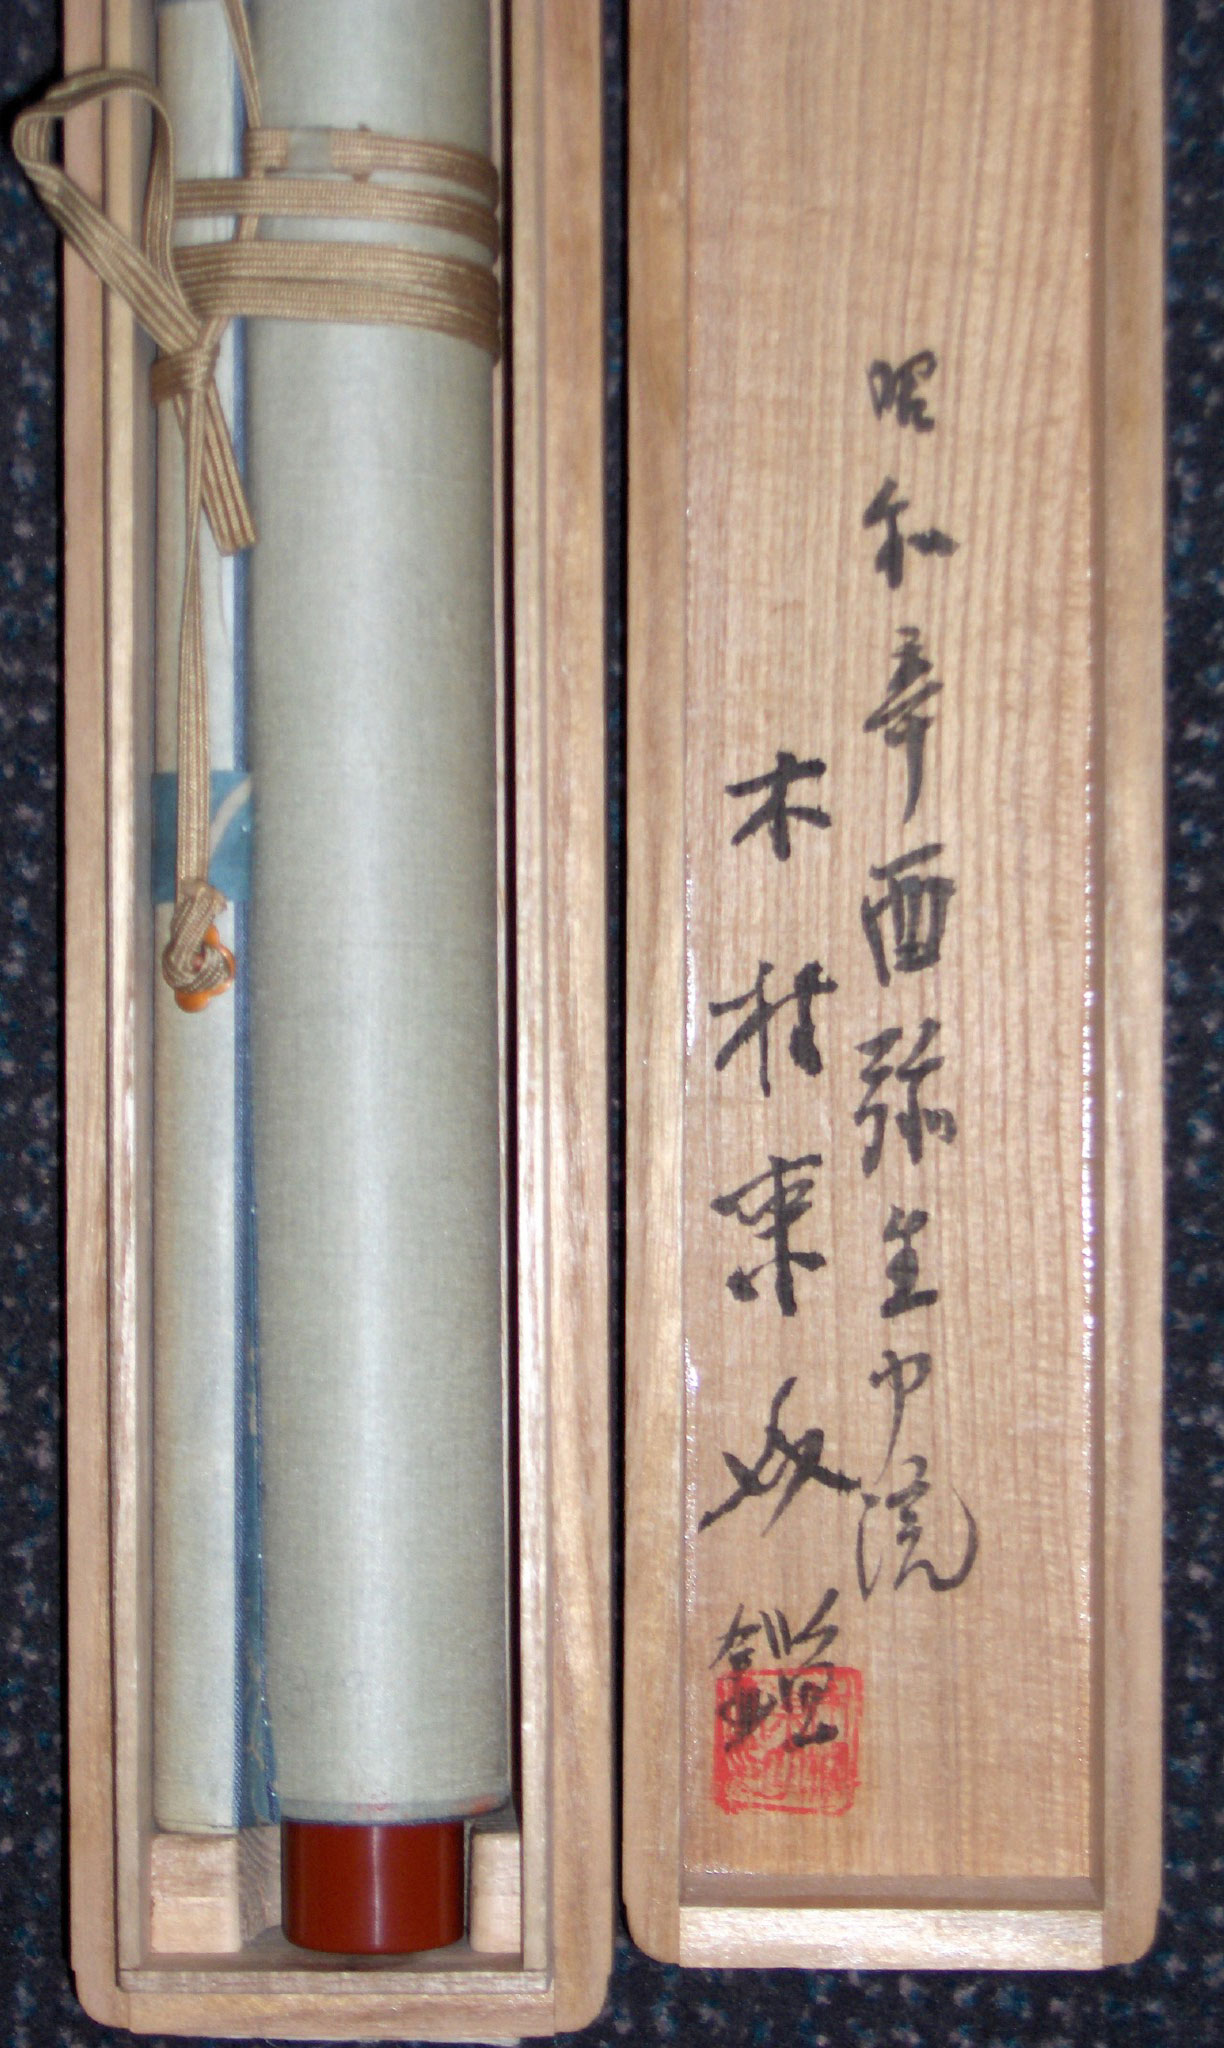 昭和辛酉弥生中浣
木村東介鑑